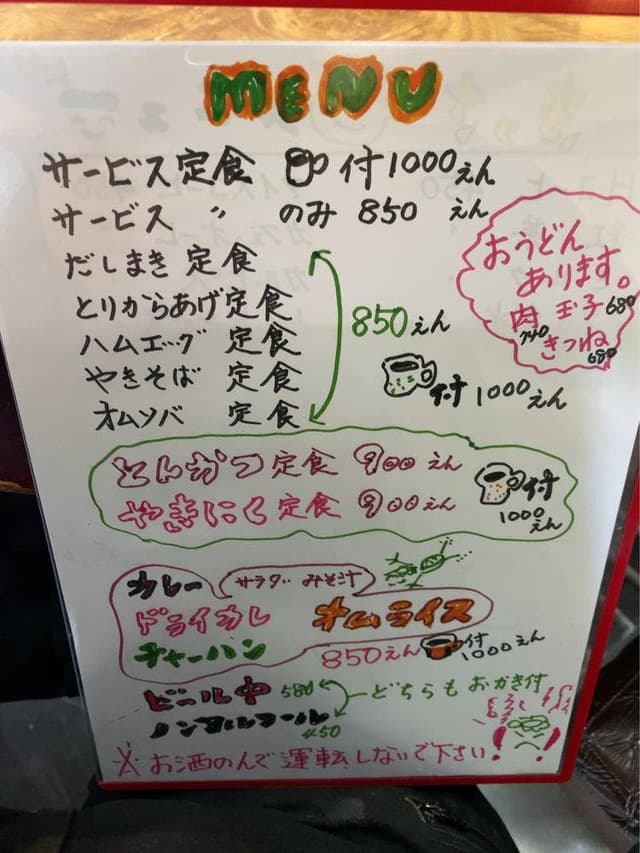 MENU
サービス定食 付1000えん
サービス 〃 のみ 850 えん
だしまき 定食
とりからあげ定食
ハムエッグ 定食
やきそば 定食
オムソバ 定食
850えん
付 1000えん
おうどん
あります。
肉 玉子680
740 きつね
680
とんかつ定食 900 えん
やきにく定食 900 えん
付
1000
えん
カレー サラダ みそ汁
ドライカレー オムライス
チャーハン 850えん 付
1000えん
ビール中 580 どちらも おかき付
ノンアルコール
450
※ お酒のんで運転しないで下さい!